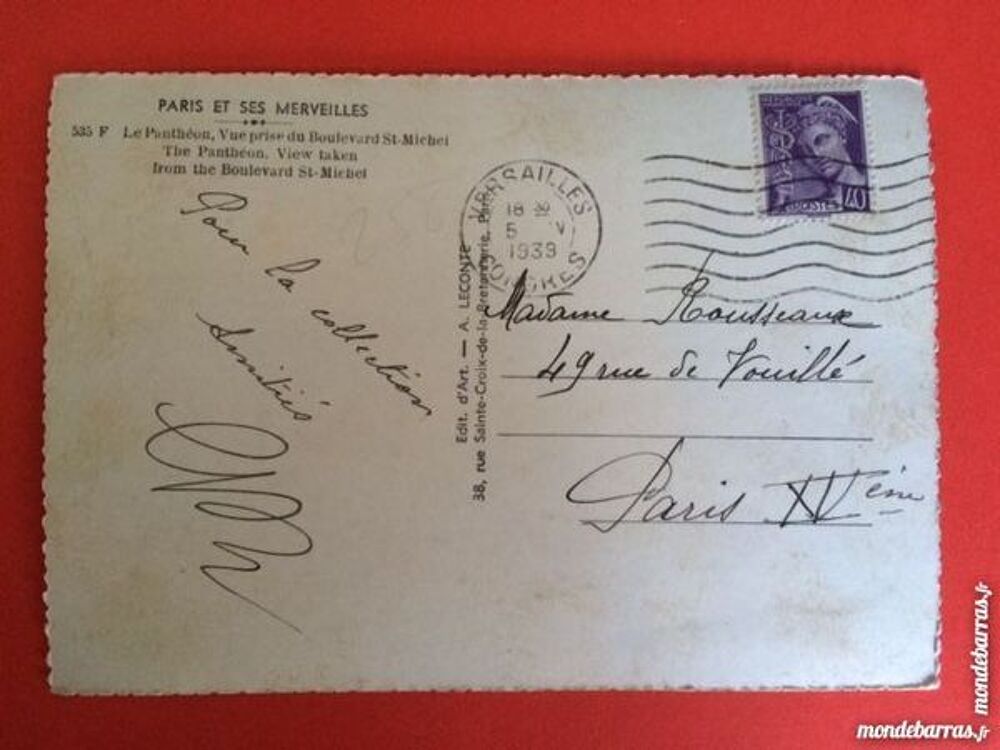 PARIS ET SES MERVEILLES
535 F Le Panthéon, Vue prise du Boulevard St-Michel
The Panthéon, View taken
from the Boulevard St-Michel
Pour la collection
Amitiés
Edit. d'Art. — A. LECONTE
38, rue Sainte-Croix-de-la-Bretonnerie, Paris
VERSAILLES
18 H
5 V
1939
40
POSTES
Madame Rousseaux
49 rue de Vouillé
Paris XVème
mondebarras.fr
mondebarras.fr